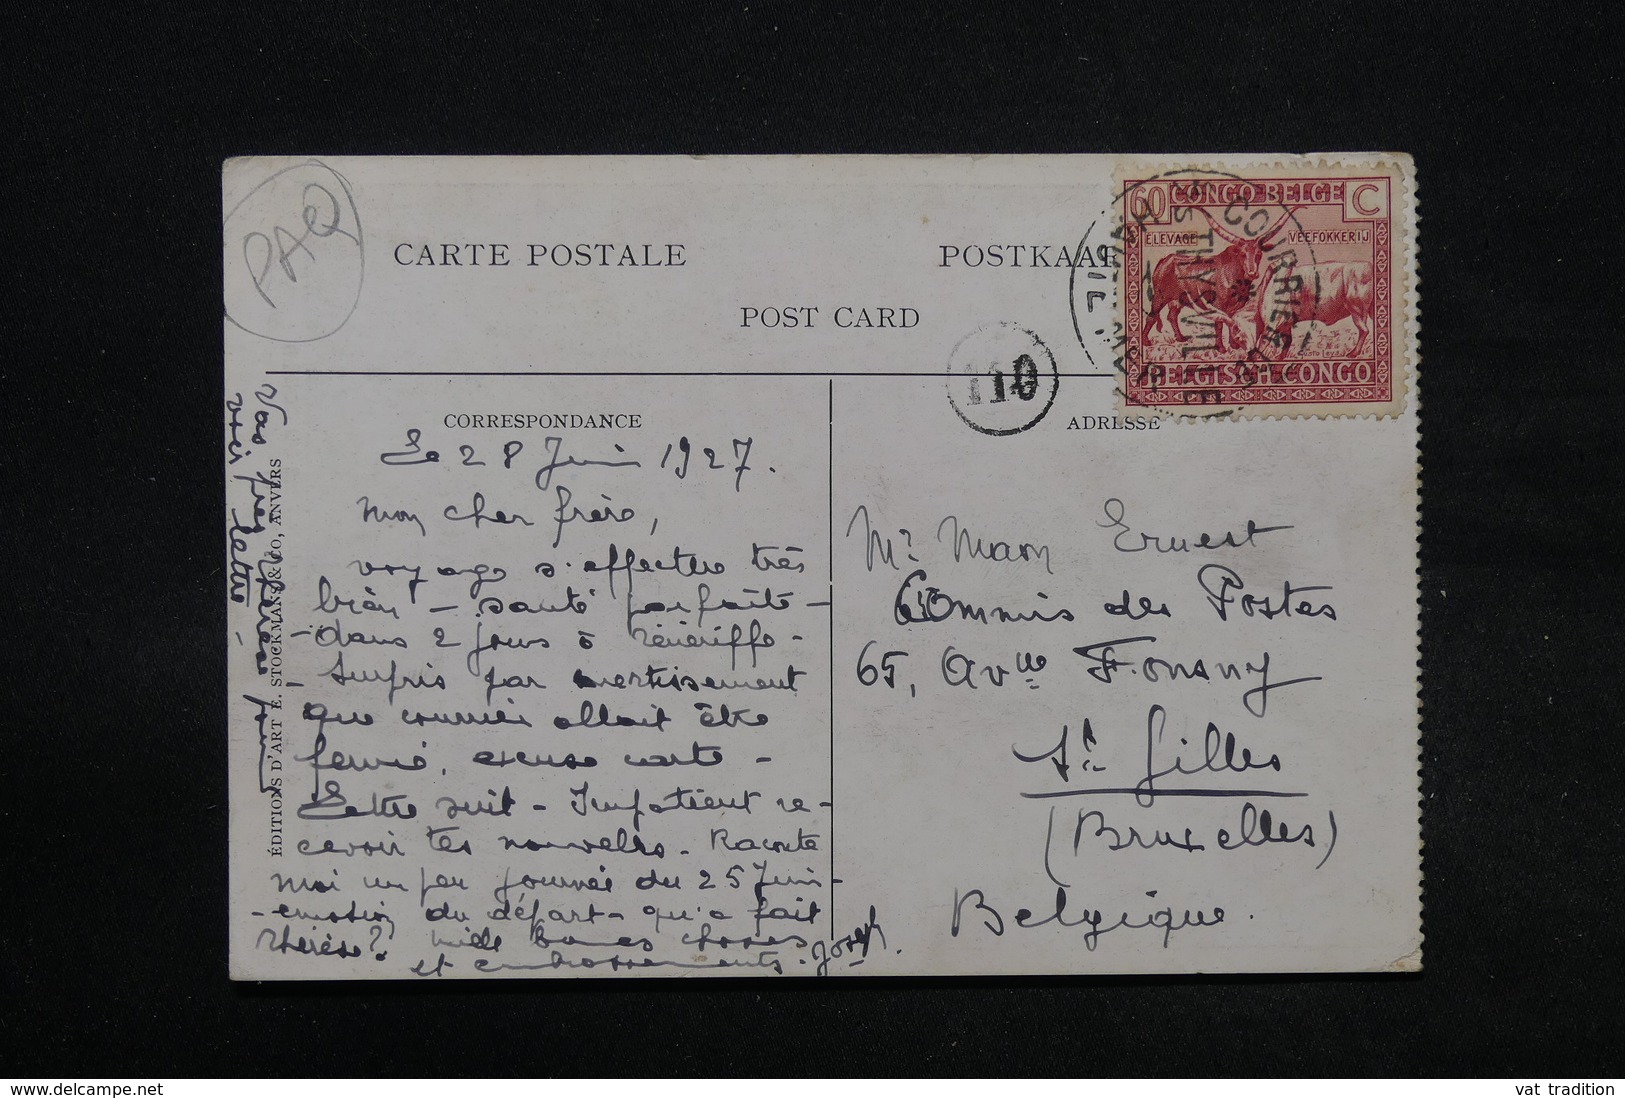 PAQ
CARTE POSTALE
POSTKAAR
POST CARD
60 CONGO BELGE C
ELEVAGE VEEFOKKERIJ
BELGISCH-CONGO
COURRIER DE HAUTE MER
SS THYSVILLE
110
CORRESPONDANCE
ADRESSE
Le 28 Juin 1927.
Mon cher frère,
voyage s'effectue très
bien - santé parfaite -
- dans 2 jours à Ténériffe -
- Surpris par avertissement
que courrier allait être
fermé, excuse carte -
Lettre suit - Impatient re-
cevoir tes nouvelles. Raconte
moi un peu journée du 25 Juin -
- émotion du départ - qu'a fait
Thérèse? Mille bonnes choses
et embrassements. Joseph.
voir lettre -
ÉDITIONS D'ART E. STOCKMANS & CO, ANVERS
Mr Maon Ernest
Commis des Postes
65, Avnue Fonsny
St Gilles
(Bruxelles)
Belgique.
www.delcampe.net
vat tradition